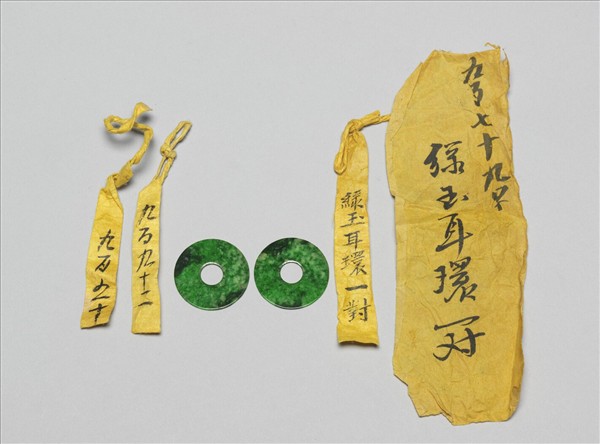 九百七十九号
綠玉耳環一对
綠玉耳環一對
九百九十二
九百五十